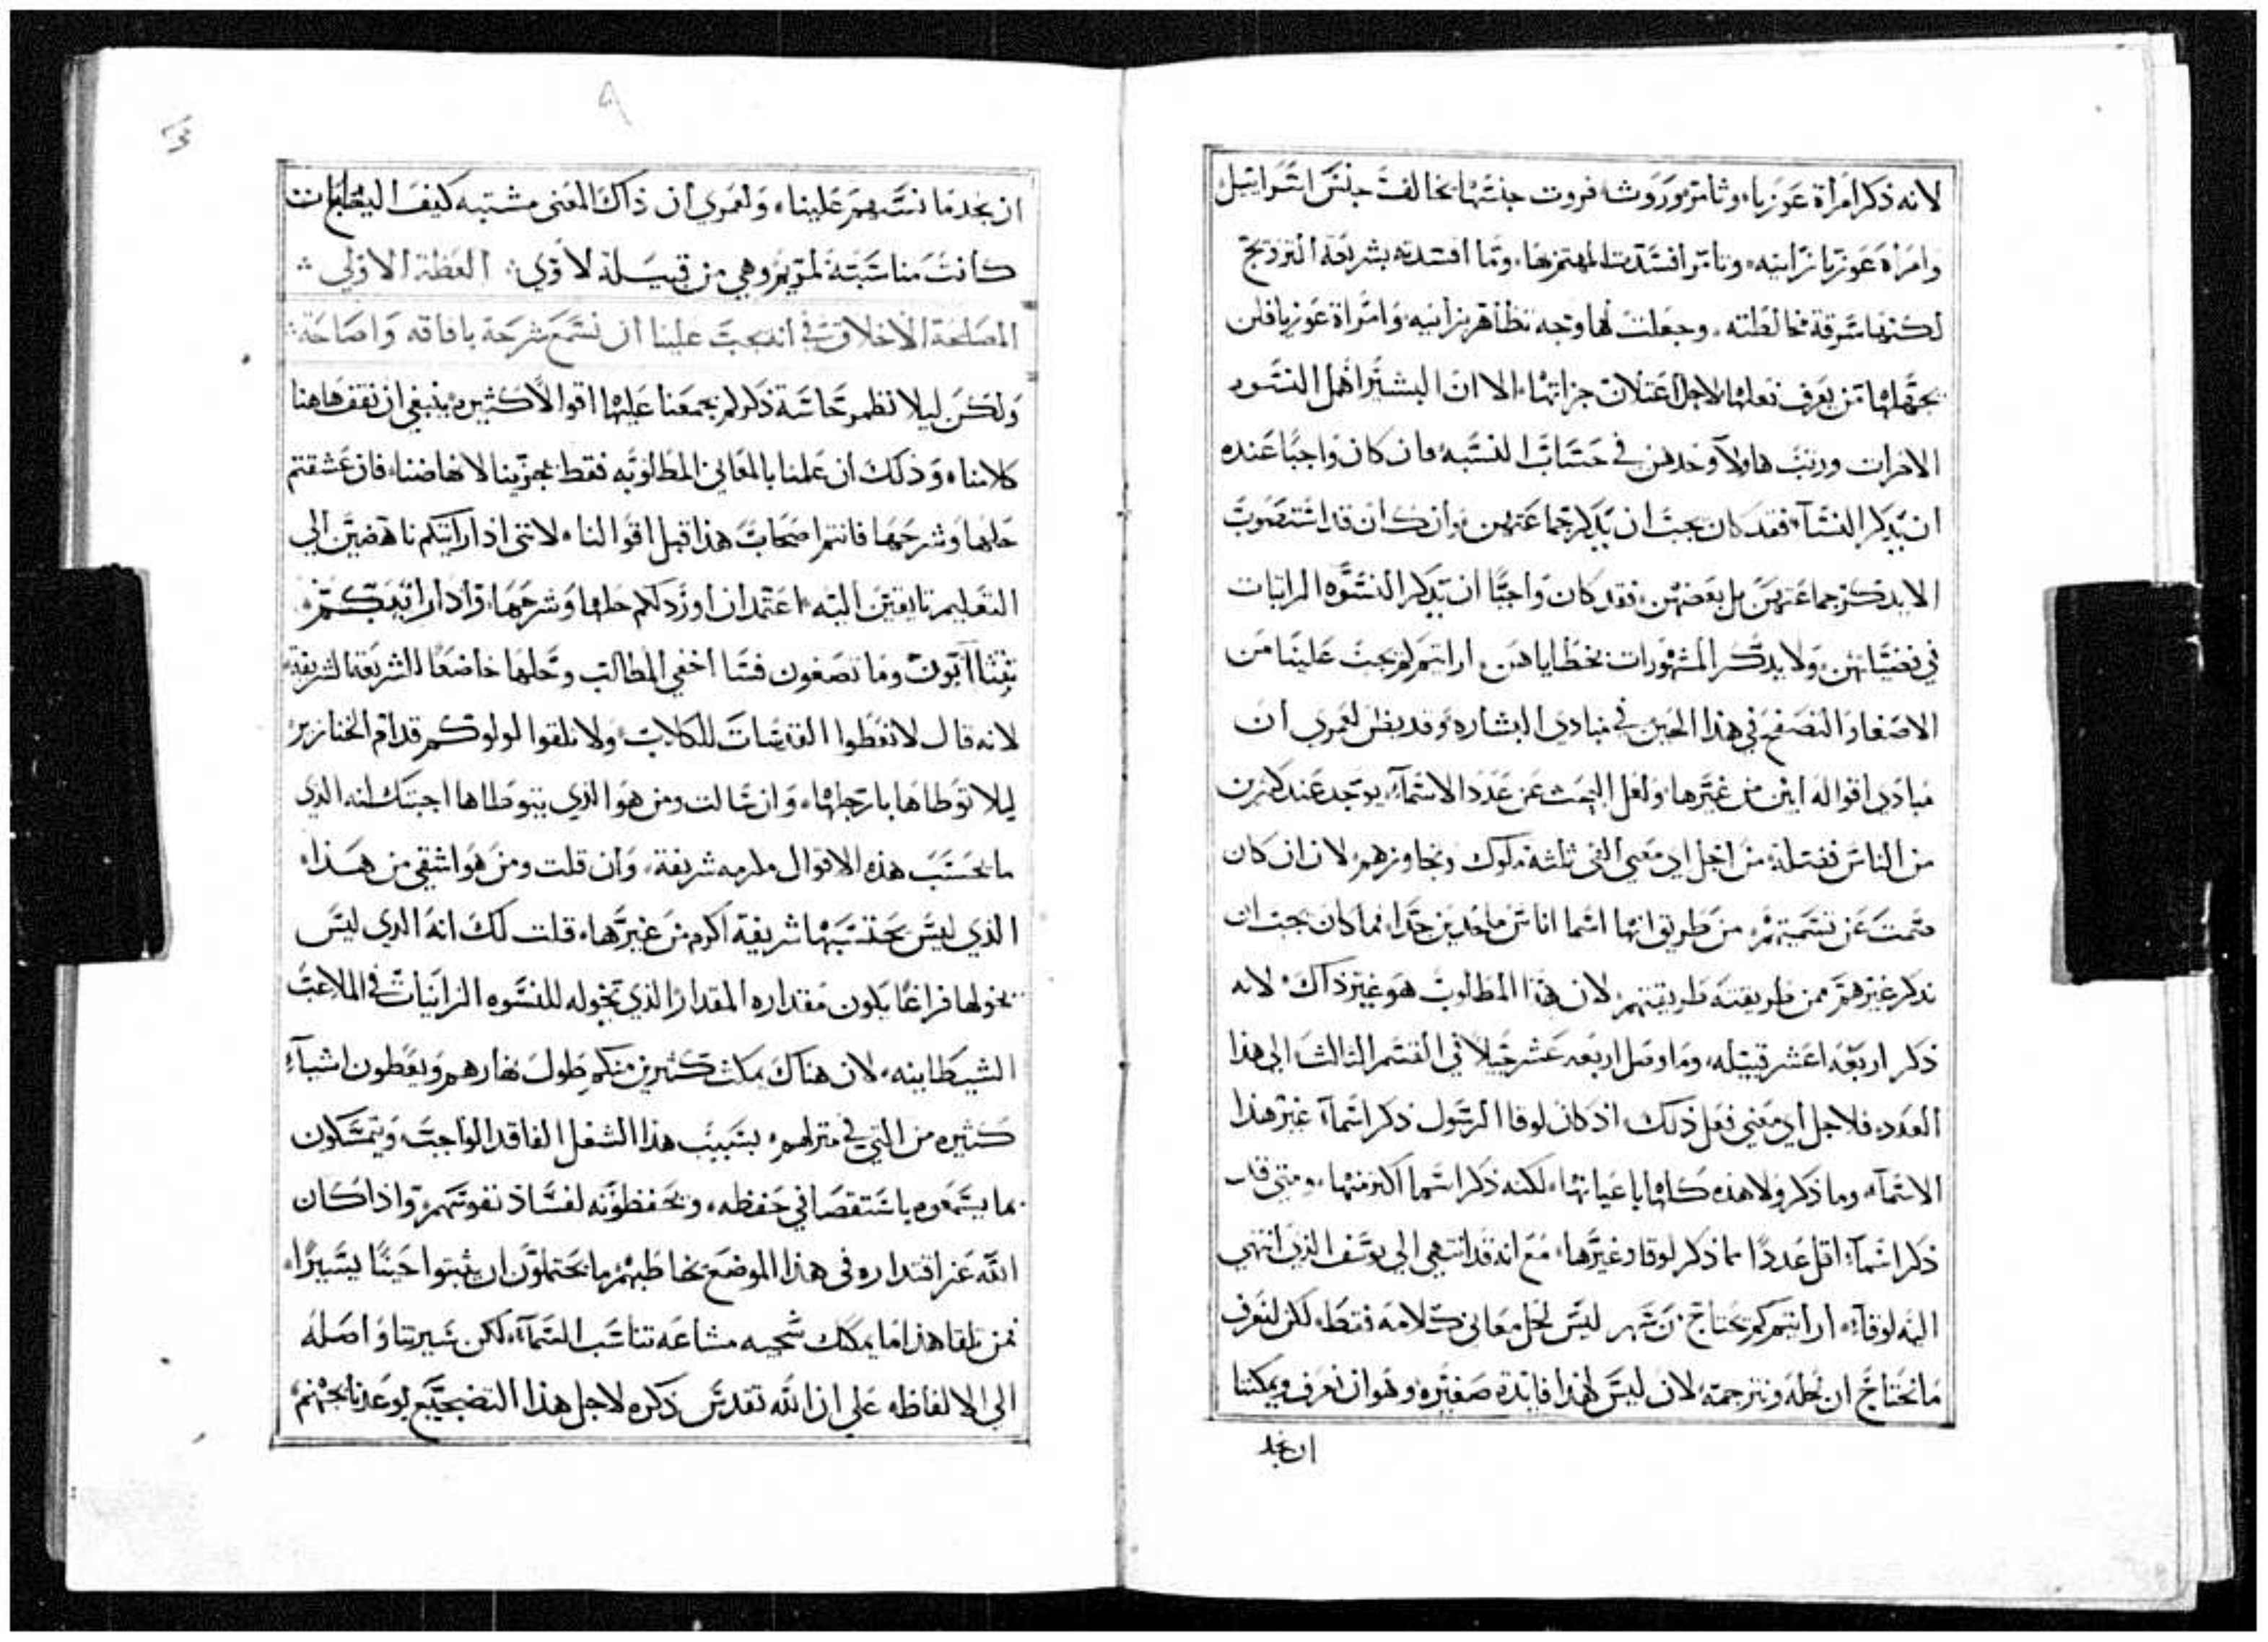 لانه ذكر امرأة عوزيا، وثامر وروث، فروت جنسها يخالف جنس اسرايل
وامراة عوزيا زانيه، وثامر افسدت لا بشريعة التزويج
لكنها سرقة مخالطته، وجعلت لها وجه تظاهر بزانيه، وامراة عوزيا فلن
يجهلها من يعرف فعلها لاجل اعتلان جراتها، الا ان البشير اهمل النسوه
الاخرات ورتب هاولآ وحدهن في حساب النسبه، فان كان واجبًا عنده
ان يذكر النسآء، فقد كان يجب ان يذكر جماعتهن، وان كان قد استصوب
الا يذكر جماعتهن بل بعضهن، فقد كان واجبًا ان يذكر النسوه
في ولا يذكر المشهورات بخطاياهن، ارايتم كم يجب علينا من
الاصغا والتصفح في هذا الحين في مبادي البشاره، وقد يظن لعمري ان
مبادي اقواله ابين من غيرها، ولعل البحث عن عدد الاسمآء، يوجد عند كثيرن
من الناس فضله، من اجل اي معني الغي ثلثة ملوك وتجاوزهم، لان ان كان
صمت عن تسميتهم، من طريق انها اسما اناس ملحدين جدا، فما كان يجب ان
يذكر غيرهم ممن طريقته طريقتهم، لان هذا المطلوب هو غير ذاك، لانه
ذكر اربعة اعشر قبيله، وما وصل اربعه عشر جيلاً في القسم الثالث الي هذا
العدد، فلاجل اي معني فعل ذلك، اذ كان لوقا الرسول ذكر اسمآء غير هذا
الاسمآء، وما ذكر ولا هذه كلها باعيانها، لكنه ذكر اسما اكثر منها، ومتي قد
ذكر اسمآء اقل عددًا مما ذكر لوقا وغيرها، مع انه قد انتهي الي يوسف الذي انتهي
اليه لوقآ، ارايتم كم يحتاج من سهر ليس لحل معاني كلامه فقط، لكن لنعرف
ما نحتاج ان نحله ونترجمه، لان ليس لهذا فايدة صغيره، وهو ان نعرف ويمكننا
ان نجد
٩
ان نجد ما نتبهم علينا، ولعمري ان ذاك المعني مشتبه كيف اليصابات
كانت مناسبته لمريم وهي من قبيلة لاوي، العظة الاولي
المصلحة الاخلاق، في انه يجب علينا ان نسمع شرحه بافاقه واصاخة
ولكن ليلا نطمر حاسة ذكركم بجمعنا عليها اقوالاً كثيره، ينبغي ان نقف هاهنا
كلامنا، وذلك ان علمنا بالمعاني المطلوبه فقط يجزينا لانهاضنا، فان عشقتم
حلها وشرحها فانتم اصحاب هذا قبل اقوالنا، لانني اذا رايتكم ناهضين الي
التعليم تايقين اليه، اعتمد ان اورد لكم حلها وشرحها، واذا رايتكم
وما تصغون اخفي المطالب وحلها خاضعًا للشريعة الشريفة
لانه قال لا تعطوا القدسات للكلاب، ولا تلقوا لولوكم قدام الخنازير
ليلا توطاها بارجلها، وان سالت ومن هو الذي يتوطاها اجبتك انه الذي
ما يحسب هذه الاقوال مكرمه شريفة، وان قلت ومن هو اشقي من هذا،
الذي ليس يحتسبها شريفة اكرم من غيرها، قلت لك انه الذي ليس
يخولها فراغا يكون مقداره المقدار الذي تخوله للنسوه الزانيات في الملاعب
الشيطانيه، لان هناك يمكث كثيرين منكم طول نهارهم ويعطون اشيآء
كثيره من التي في منزلهم، بسبب هذا الشغل الفاقد الواجب، ويتمسكون
بما يسمعوه باستقصا في حفظه، ويحفظونه لفساد نفوسهم، واذا كان
الله عز اقتداره في هذا الموضع يخاطبهم ما يحتملون ان يثبتوا حينًا يسيرًا،
فمن تلقا هذا ما يمكنك مشاعه تناسب السمآء، لكن سيرتنا واصله
الي الالفاظ، علي ان الله تقدس ذكره لاجل هذا التضجع يوعدنا بجهنم